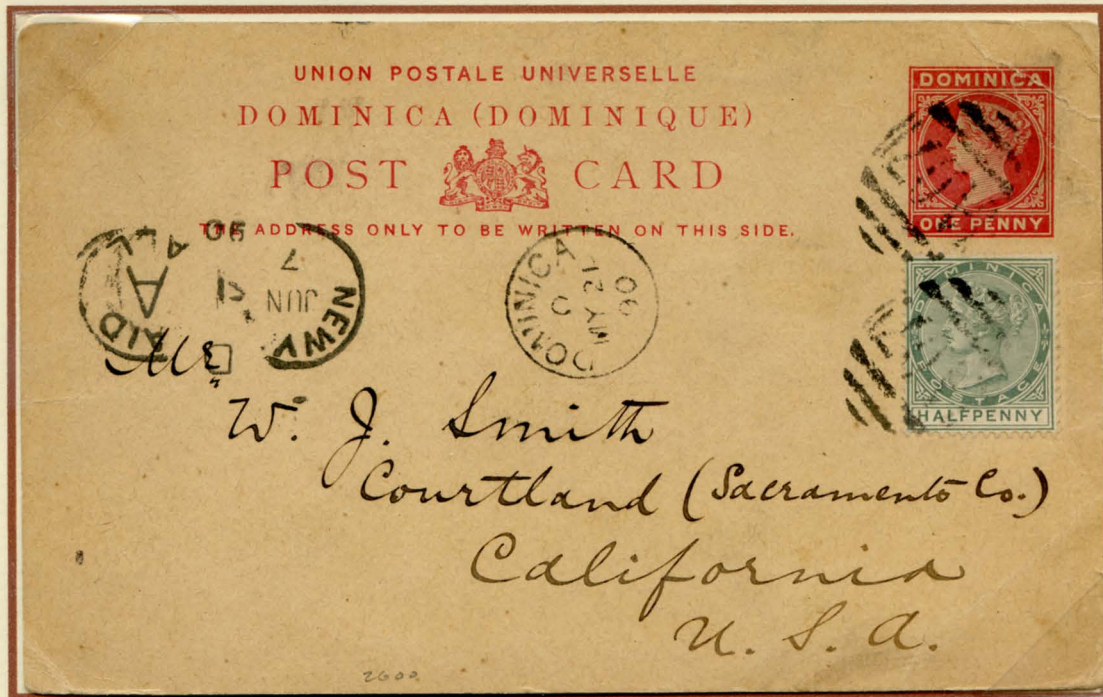 UNION POSTALE UNIVERSELLE
DOMINICA (DOMINIQUE)
POST CARD
THE ADDRESS ONLY TO BE WRITTEN ON THIS SIDE.
DOMINICA
ONE PENNY
DOMINICA
POSTAGE
HALFPENNY
DOMINICA
C
MY 21
90
NEW Y
JUN
7
90
A
AID
ALL
Mr.
W. J. Smith
Courtland (Sacramento Co.)
California
U. S. A.
2600